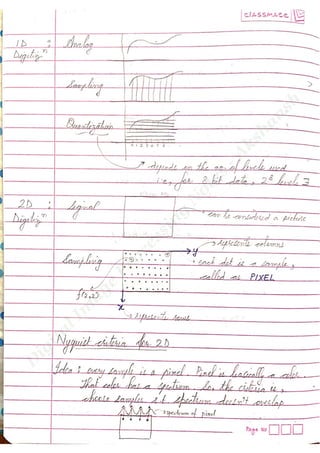 CLASSMATE
1D : Analog
Digitizⁿ
Sampling
Quantization
depends on the no. of levels used
i.e., for 8 bit data, 2⁸ levels ∃
2D : Signal
Digitizⁿ
• can be considered a picture
y
represents columns
Sampling
• each dot is a sample,
called as PIXEL
f(2,2)
x
represents rows
Nyquist criteria for 2D
Idea : every sample is a pixel. Pixel is basically a color.
That color has a spectrum. So, the criteria is,
choose samples s.t spectrum doesn't overlap
spectrum of pixel
Page no